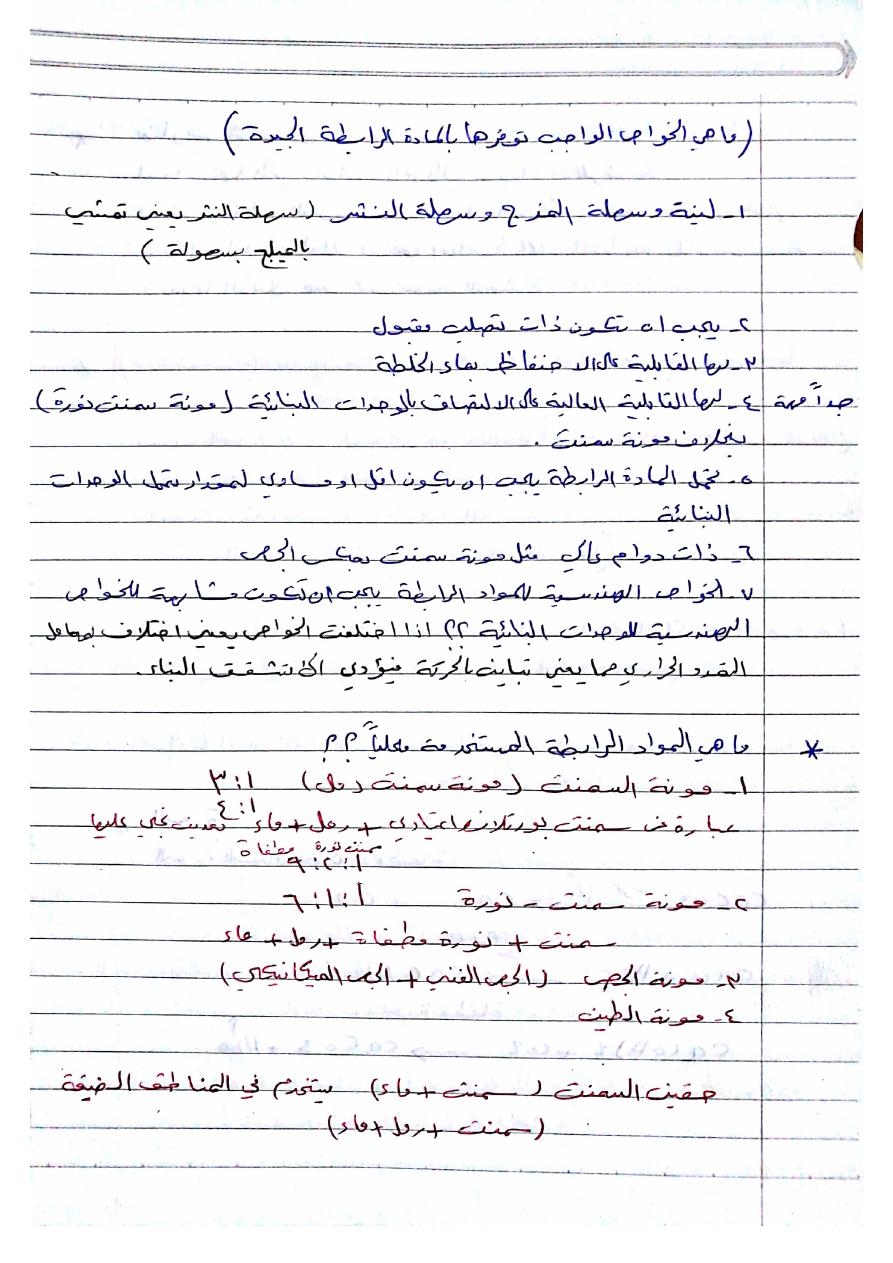 (ما هي الخواص الواجب توفرها بالمادة الرابطة الجيدة)
١- لينة وسهلة المزج وسهلة النشر (سهلة النشر يعني تمشي
بالميلج بسهولة)
٢- يجب ان تكون ذات تصلب مقبول
٣- لها القابلية على الاحتفاظ بماء الخلطة
جداً مهمة ٤- لها القابلية العالية على الالتصاق بالوحدات البنائية (مونة سمنت نورة)
بخلاف مونة سمنت .
٥- تحمل المادة الرابطة يجب ان يكون اقل او مساوي لمقدار تحمل الوحدات
البنائية
٦- ذات دوام عالي مثل مونة سمنت بعكس الجص
٧- الخواص الهندسية للمواد الرابطة يجب ان تكون مشابهة للخواص
الهندسية للوحدات البنائية ؟؟ اذا اختلفت الخواص يعني اختلاف بمعامل
التمدد الحراري مما يعني تباين بالحركة فيؤدي الى تشقق البناء.
* ما هي المواد الرابطة المستخدمة محلياً ؟؟
١- مونة السمنت (مونة سمنت رمل) ١:٣
١:٤
عبارة عن سمنت بورتلاندي اعتيادي + رمل + ماء
سمنت نورة مطفاة
١:٢:٩
٢- مونة سمنت - نورة ١:١:٦
سمنت + نورة مطفاة + رمل + ماء
٣- مونة الجص (الجص الفني + الجص الميكانيكي)
٤- مونة الطين
حقين السمنت (سمنت + ماء) يستخدم في المناطق الضيقة
(سمنت + رمل + ماء)